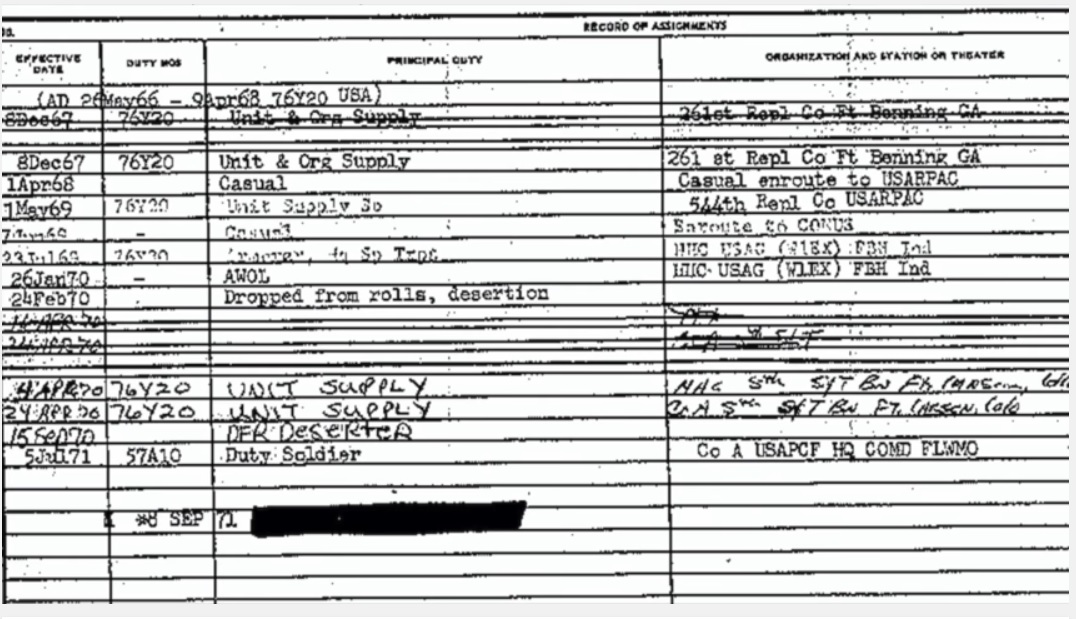 RECORD OF ASSIGNMENTS
EFFECTIVE DATE DUTY MOS PRINCIPAL DUTY ORGANIZATION AND STATION OR THEATER
(AD 26May66 - 9Apr68 76Y20 USA)
8Dec67 76Y20 Unit & Org Supply 261st Repl Co Ft Benning GA
8Dec67 76Y20 Unit & Org Supply 261 st Repl Co Ft Benning GA
1Apr68 Casual Casual enroute to USARPAC
1May69 76Y20 Unit Supply Sp 544th Repl Co USARPAC
- Casual Enroute to CONUS
23Jul69 76Y20 HHC USAG (W1EX) FBH Ind
26Jan70 - AWOL HHC USAG (W1EX) FBH Ind
24Feb70 Dropped from rolls, desertion
14 APR 70
24 APR 70
APR70 76Y20 UNIT SUPPLY HHC 5th S&T BN Ft.
24 APR 70 76Y20 UNIT SUPPLY Co A 5th S&T BN FT. CARSON, Colo
15Sep70 DFR DESERTER
5Jul71 57A10 Duty Soldier Co A USAPCF HQ COMD FLWMO
8 SEP 71